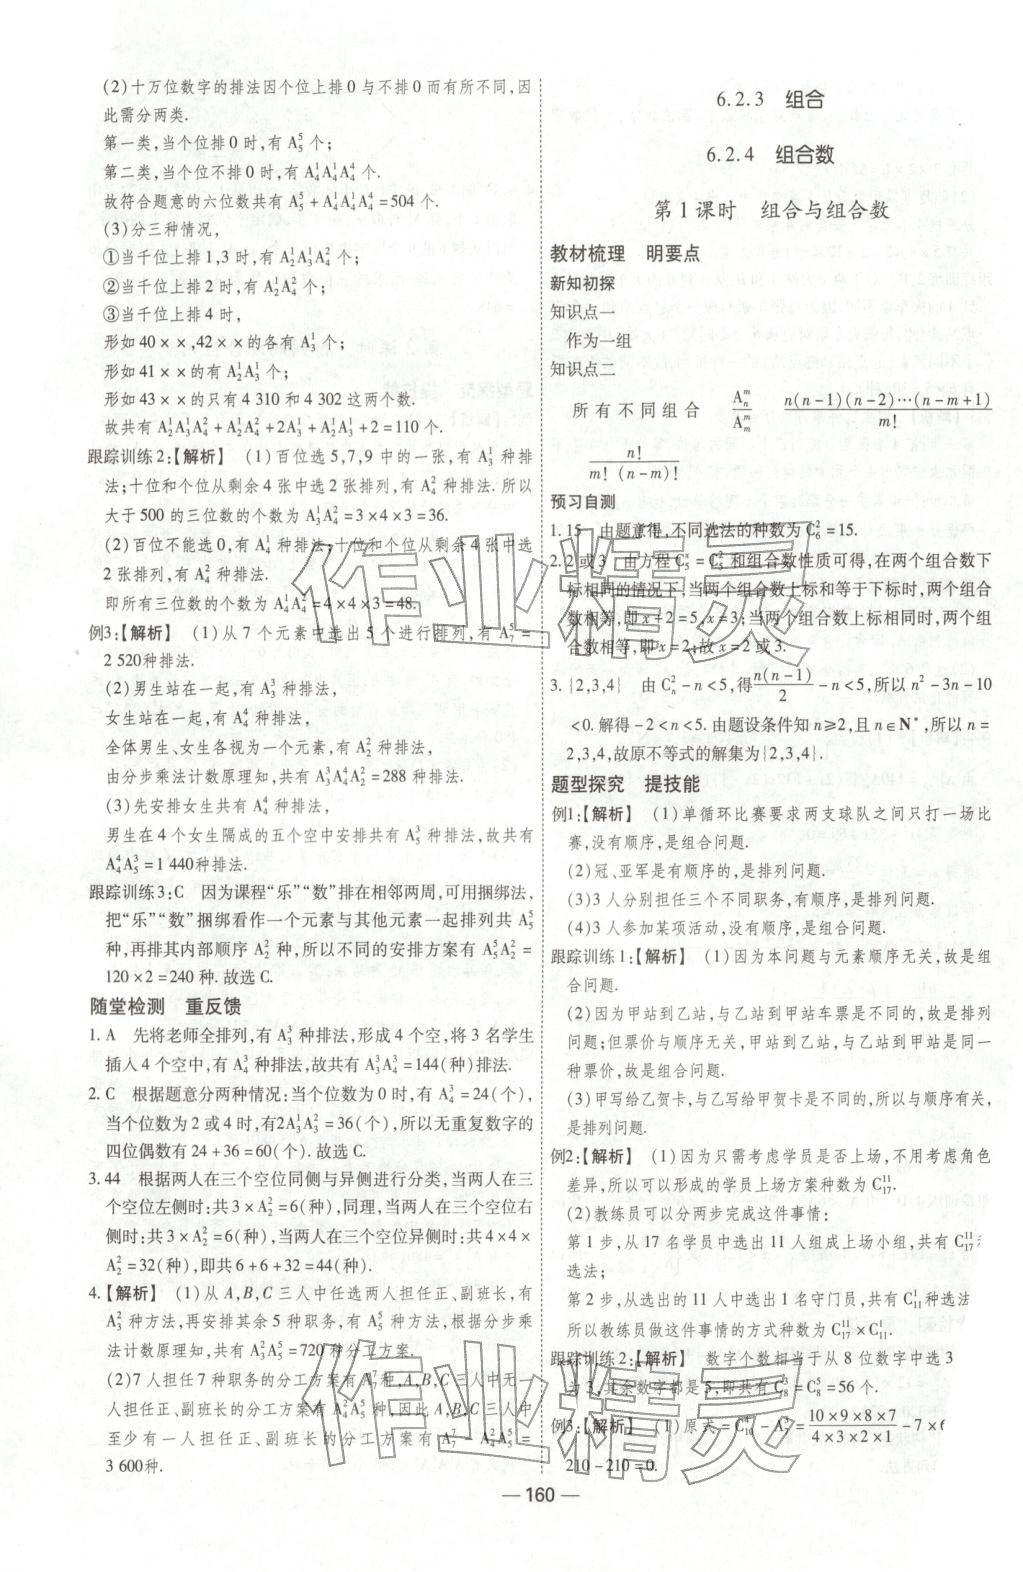 (2)十万位数字的排法因个位上排0与不排0而有所不同,因
此需分两类.
第一类,当个位排0时,有A₅⁵个;
第二类,当个位不排0时,有A₄¹A₄¹A₄⁴个.
故符合题意的六位数共有A₅⁵+A₄¹A₄¹A₄⁴=504个.
(3)分三种情况,
①当千位上排1,3时,有A₂¹A₃¹A₄²个;
②当千位上排2时,有A₂¹A₄²个;
③当千位上排4时,
形如40××,42××的各有A₃¹个;
形如41××的有A₂¹A₃¹个;
形如43××的只有4 310和4 302这两个数.
故共有A₂¹A₃¹A₄²+A₂¹A₄²+2A₃¹+A₂¹A₃¹+2=110个.
跟踪训练2:【解析】 (1)百位选5,7,9中的一张,有A₃¹种排
法;十位和个位从剩余4张中选2张排列,有A₄²种排法.所以
大于500的三位数的个数为A₃¹A₄²=3×4×3=36.
(2)百位不能选0,有A₄¹种排法;十位和个位从剩余4张中选
2张排列,有A₄²种排法.
即所有三位数的个数为A₄¹A₄²=4×4×3=48.
例3:【解析】 (1)从7个元素中选出5个进行排列,有A₇⁵=
2 520种排法.
(2)男生站在一起,有A₃³种排法,
女生站在一起,有A₄⁴种排法,
全体男生、女生各视为一个元素,有A₂²种排法,
由分步乘法计数原理知,共有A₃³A₄⁴A₂²=288种排法.
(3)先安排女生共有A₄⁴种排法,
男生在4个女生隔成的五个空中安排共有A₅³种排法,故共有
A₄⁴A₅³=1 440种排法.
跟踪训练3:C 因为课程“乐”“数”排在相邻两周,可用捆绑法,
把“乐”“数”捆绑看作一个元素与其他元素一起排列共A₅⁵
种,再排其内部顺序A₂²种,所以不同的安排方案有A₅⁵A₂²=
120×2=240种.故选C.
随堂检测 重反馈
1. A 先将老师全排列,有A₃³种排法,形成4个空,将3名学生
插入4个空中,有A₄³种排法,故共有A₃³A₄³=144(种)排法.
2. C 根据题意分两种情况:当个位数为0时,有A₄³=24(个),
当个位数为2或4时,有2A₃¹A₃²=36(个),所以无重复数字的
四位偶数有24+36=60(个).故选C.
3. 44 根据两人在三个空位同侧与异侧进行分类,当两人在三
个空位左侧时:共3×A₂²=6(种),同理,当两人在三个空位右
侧时:共3×A₂²=6(种),当两人在三个空位异侧时:共4×4×
A₂²=32(种),即共6+6+32=44(种).
4.【解析】 (1)从A,B,C三人中任选两人担任正、副班长,有
A₃²种方法,再安排其余5种职务,有A₅⁵种方法,根据分步乘
法计数原理知,共有A₃²A₅⁵=720种分工方案.
(2)7人担任7种职务的分工方案有A₇⁷种,A,B,C三人中无一
人担任正、副班长的分工方案有A₄²A₅⁵种,因此A,B,C三人中
至少有一人担任正、副班长的分工方案有A₇⁷-A₄²A₅⁵=
3 600种.
6.2.3 组合
6.2.4 组合数
第1课时 组合与组合数
教材梳理 明要点
新知初探
知识点一
作为一组
知识点二
所有不同组合 Aₙᵐ/Aₘᵐ n(n-1)(n-2)…(n-m+1)/m!
n!/m!(n-m)!
预习自测
1. 15 由题意得,不同选法的种数为C₆²=15.
2. 2或3 由方程C₅ˣ=C₅²和组合数性质可得,在两个组合数下
标相同的情况下,当两个组合数上标和等于下标时,两个组合
数相等,即x+2=5,x=3;当两个组合数上标相同时,两个组
合数相等,即x=2;故x=2或3.
3. {2,3,4} 由Cₙ²-n<5,得n(n-1)/2-n<5,所以n²-3n-10
<0.解得-2<n<5.由题设条件知n≥2,且n∈N*,所以n=
2,3,4,故原不等式的解集为{2,3,4}.
题型探究 提技能
例1:【解析】 (1)单循环比赛要求两支球队之间只打一场比
赛,没有顺序,是组合问题.
(2)冠、亚军是有顺序的,是排列问题.
(3)3人分别担任三个不同职务,有顺序,是排列问题.
(4)3人参加某项活动,没有顺序,是组合问题.
跟踪训练1:【解析】 (1)因为本问题与元素顺序无关,故是组
合问题.
(2)因为甲站到乙站,与乙站到甲站车票是不同的,故是排列
问题;但票价与顺序无关,甲站到乙站,与乙站到甲站是同一
种票价,故是组合问题.
(3)甲写给乙贺卡,与乙写给甲贺卡是不同的,所以与顺序有关,
是排列问题.
例2:【解析】 (1)因为只需考虑学员是否上场,不用考虑角色
差异,所以可以形成的学员上场方案种数为C₁₇¹¹.
(2)教练员可以分两步完成这件事情:
第1步,从17名学员中选出11人组成上场小组,共有C₁₇¹¹种
选法;
第2步,从选出的11人中选出1名守门员,共有C₁₁¹种选法
所以教练员做这件事情的方式种数为C₁₇¹¹×C₁₁¹.
跟踪训练2:【解析】 数字个数相当于从8位数字中选3
为3,其余数字都是5,即共有C₈³=C₈⁵=56个.
例3:【解析】 (1)原式=C₁₀⁴-A₇³=10×9×8×7/4×3×2×1-7×6
210-210=0.
— 160 —
作业精灵
作业精灵